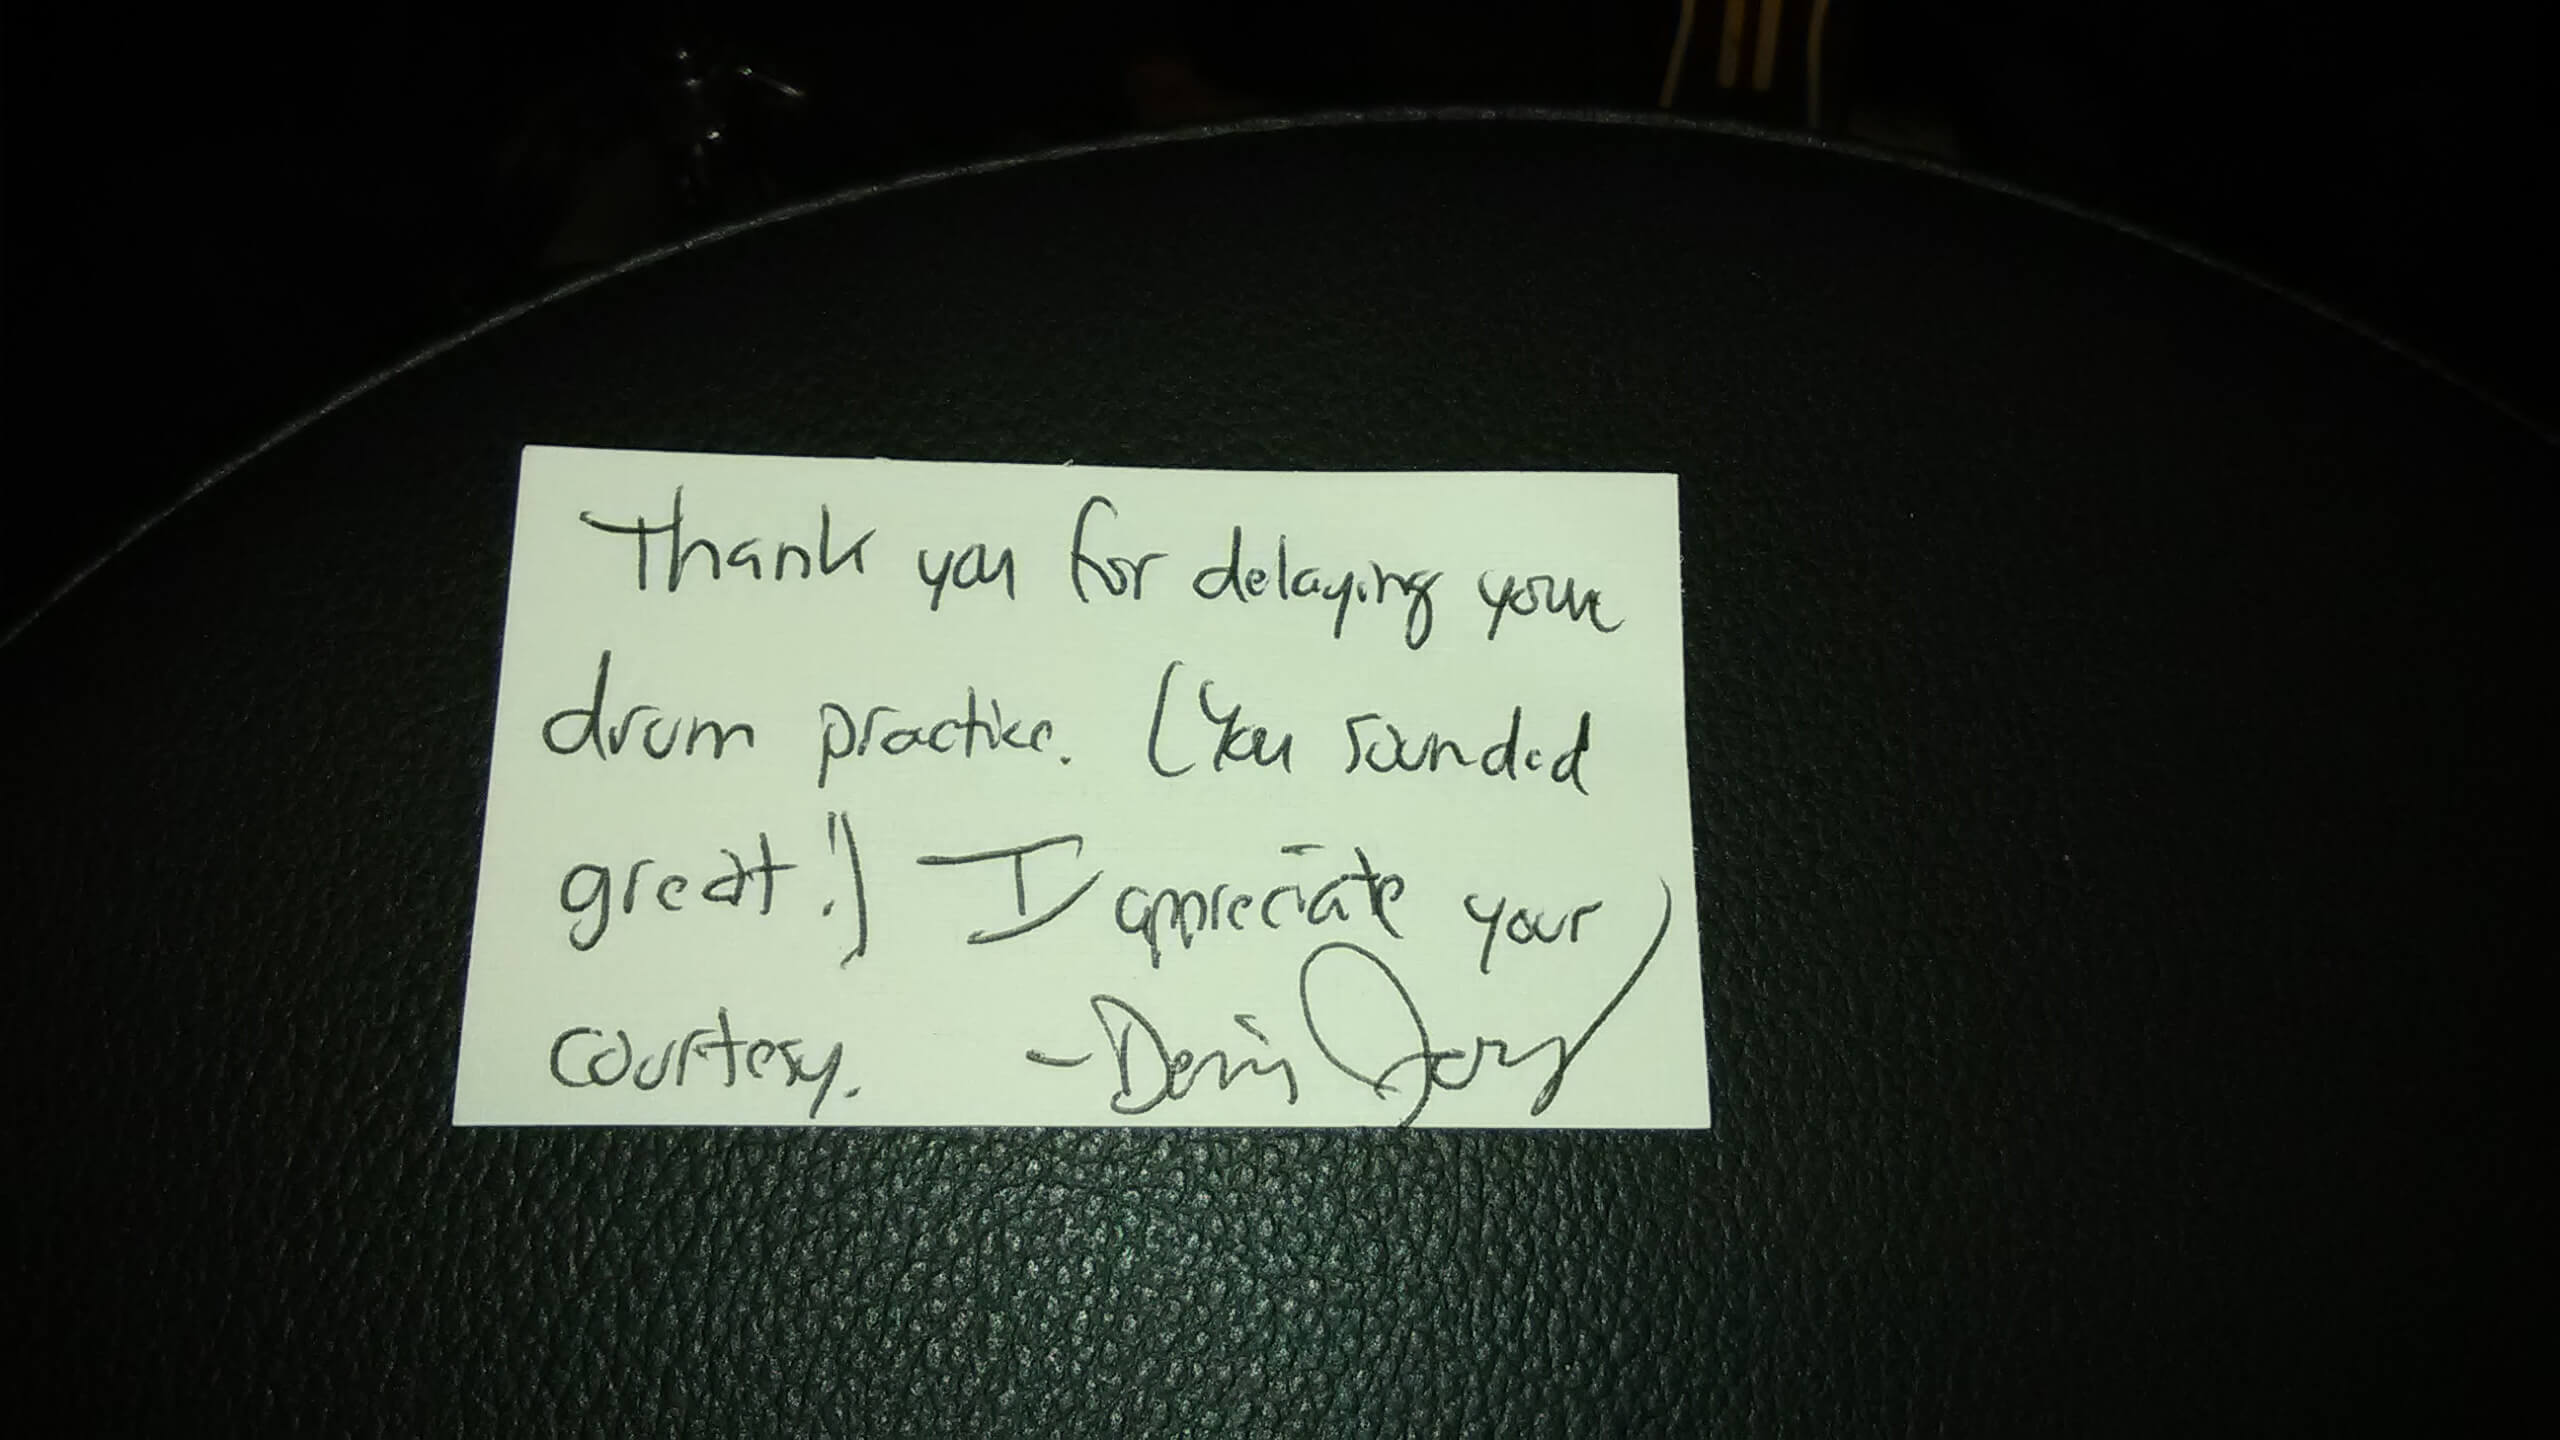 Thank you for delaying your
drum practice. (You sounded
great!) I appreciate your
courtesy. -Denis